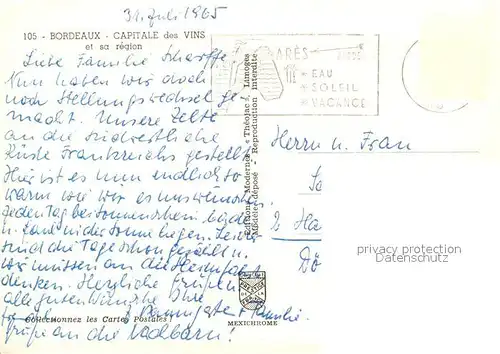 31. Juli 1965
105 - BORDEAUX - CAPITALE des VINS
et sa région
Liebe Familie
Nun haben wir doch
noch Stellungswechsel ge-
macht. Unsere Zelte
an die südwestliche
Küste Frankreichs gestellt
Hier ist es nun endlich so
warm wie wir es uns wünschen
jeden Tag bei Sonnenschein baden
u. faul in der Sonne liegen. Leider
sind die Tage schon gezählt u.
wir müssen an die Heimfahrt
denken. Herzliche Grüße u.
alle guten Wünsche Ihre
Familie
Grüße an die Nachbarn!
Collectionnez les Cartes Postales !
Editions Modernes « Théojac », Limoges
Modèle déposé - Reproduction interdite
ARÈS
* EAU
* SOLEIL
* VACANCE
Herrn u. Frau
2 Ha
Dö
privacy protection
Datenschutz
MEXICHROME